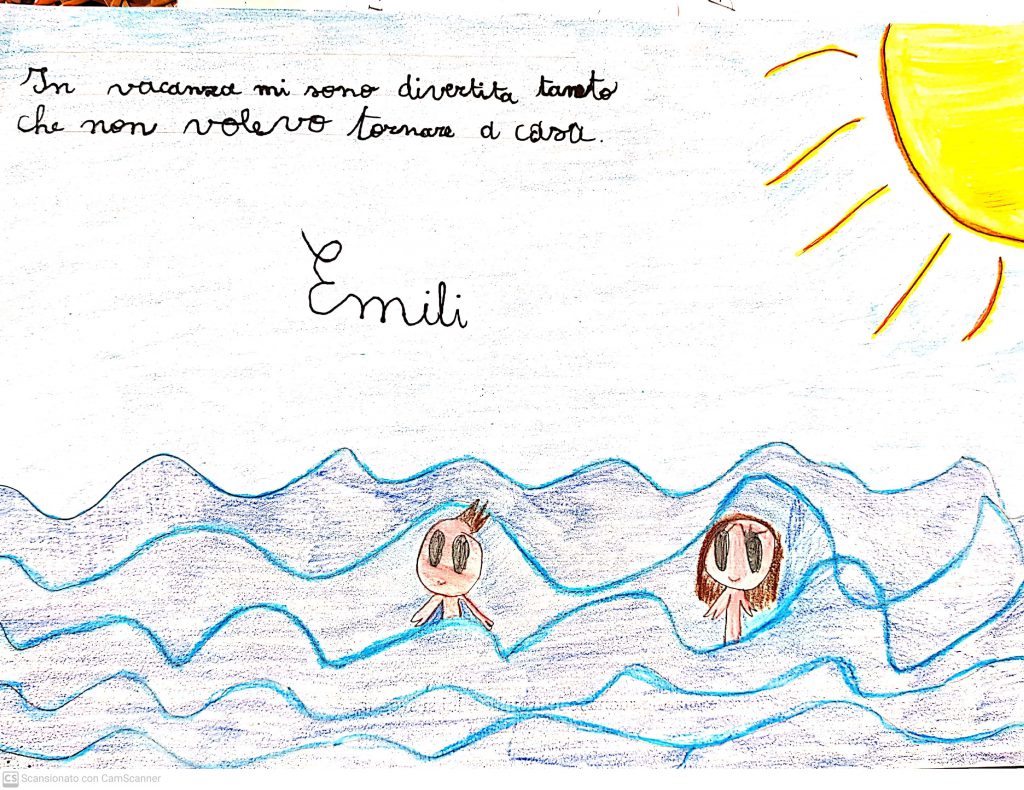 In vacanza mi sono divertita tanto
che non volevo tornare a casa.
Emili
CS Scansionato con CamScanner